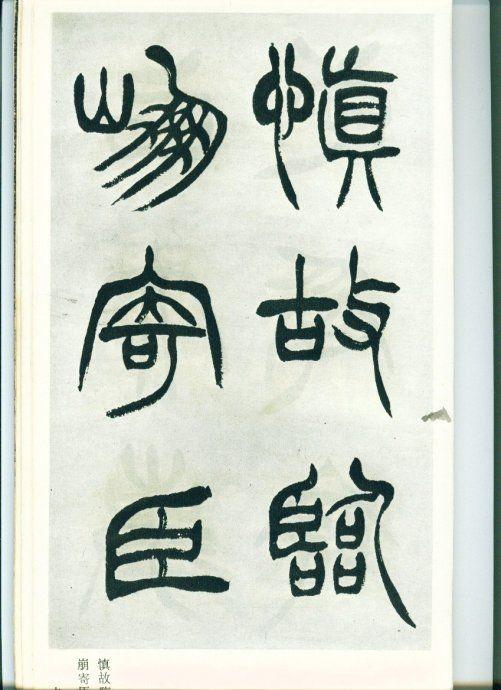 慎故臨
崩寄臣
慎故臨
崩寄臣